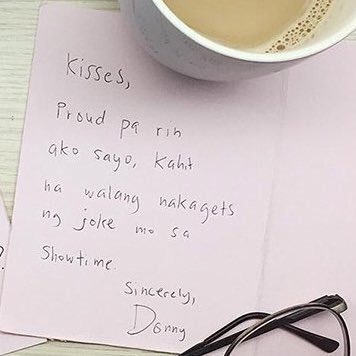 Kisses,
Proud pa rin
ako sayo, Kahit
na walang nakagets
ng joke mo sa
Showtime.
Sincerely,
Donny